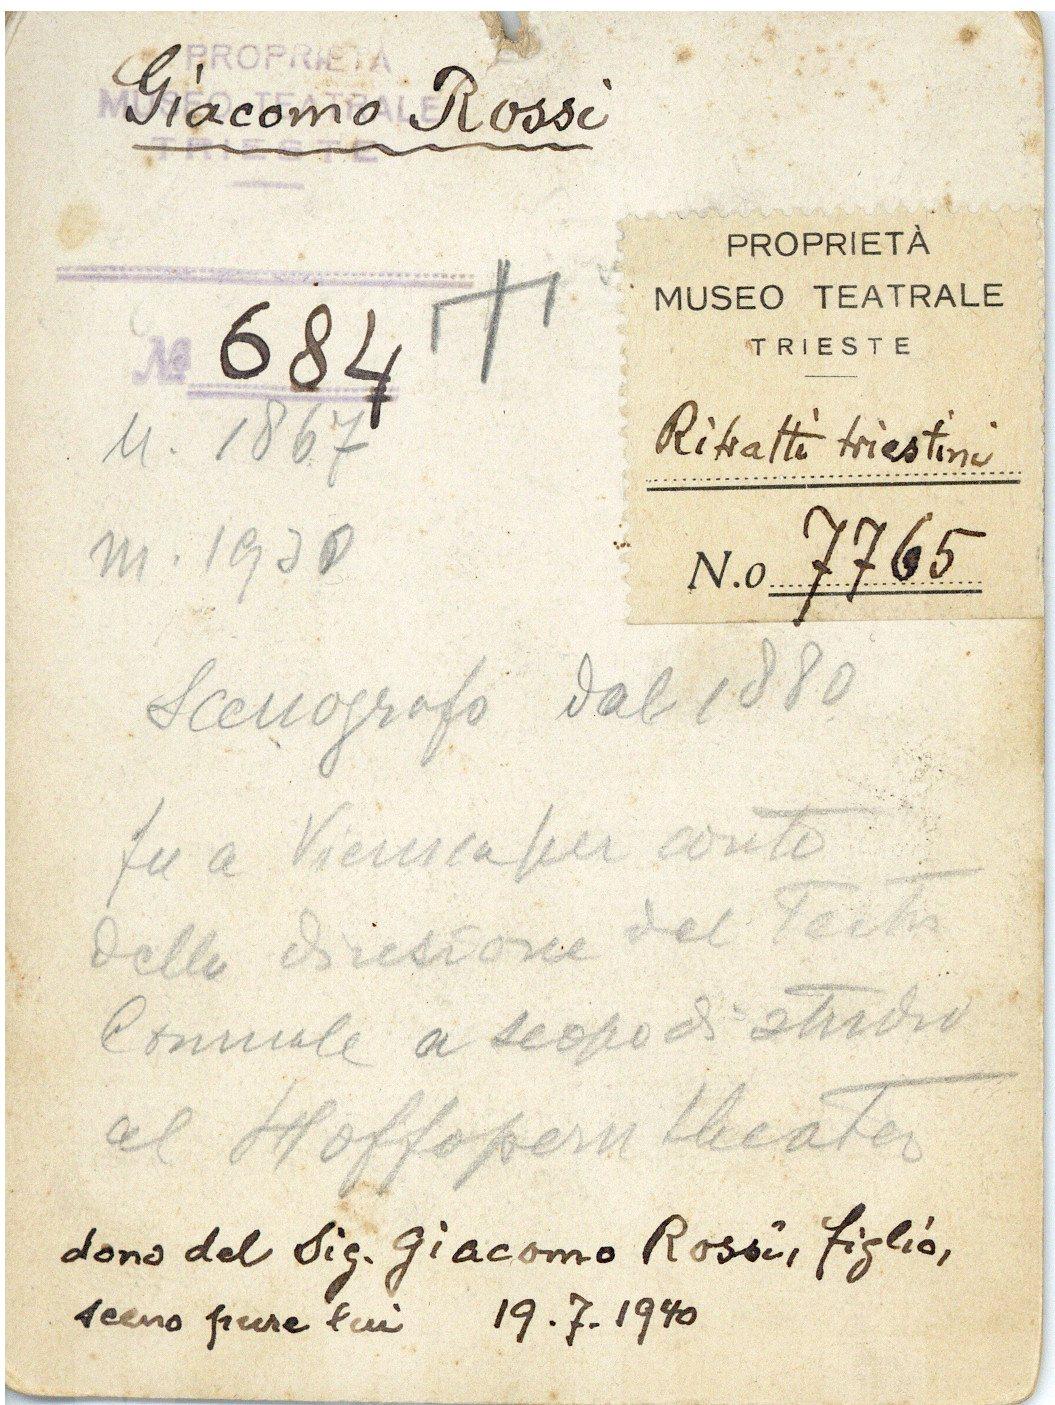 PROPRIETÀ
MUSEO TEATRALE
TRIESTE
Giacomo Rossi
№ 684
PROPRIETÀ
MUSEO TEATRALE
TRIESTE
Ritratti triestini
N.o 7765
n. 1867
m. 1930
Scenografo dal 1880
fu a Vienna per conto
della diresione del Teatro
Comunale a scopo di studio
al Hoffopern theater
dono del Sig. Giacomo Rossi, figlio,
sceno pure lui 19.7.1940